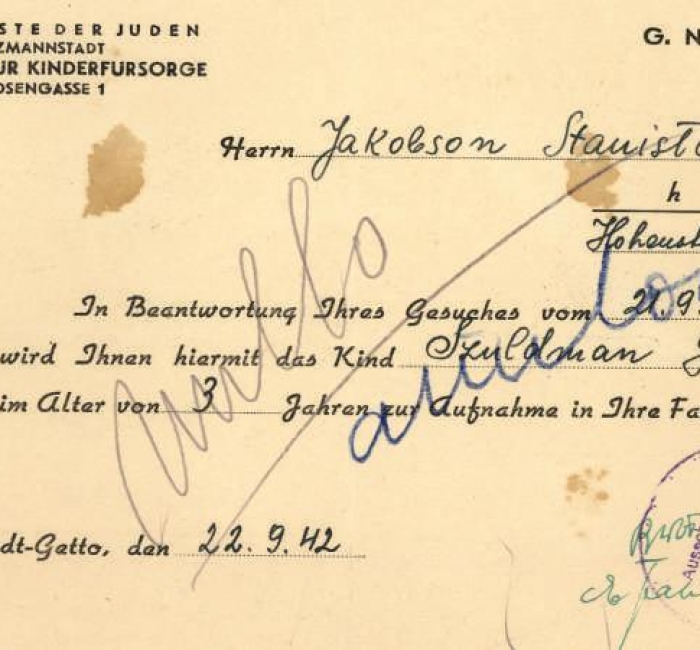 STE DER JUDEN
ZMANNSTADT
UR KINDERFURSORGE
OSENGASSE 1
G. N
Herrn Jakobson Stanisł
h
Hohenst
In Beantwortung Ihres Gesuches vom 21.9
wird Ihnen hiermit das Kind Szuldman
im Alter von 3 Jahren zur Aufnahme in Ihre Fa
dt-Getto, den 22.9.42